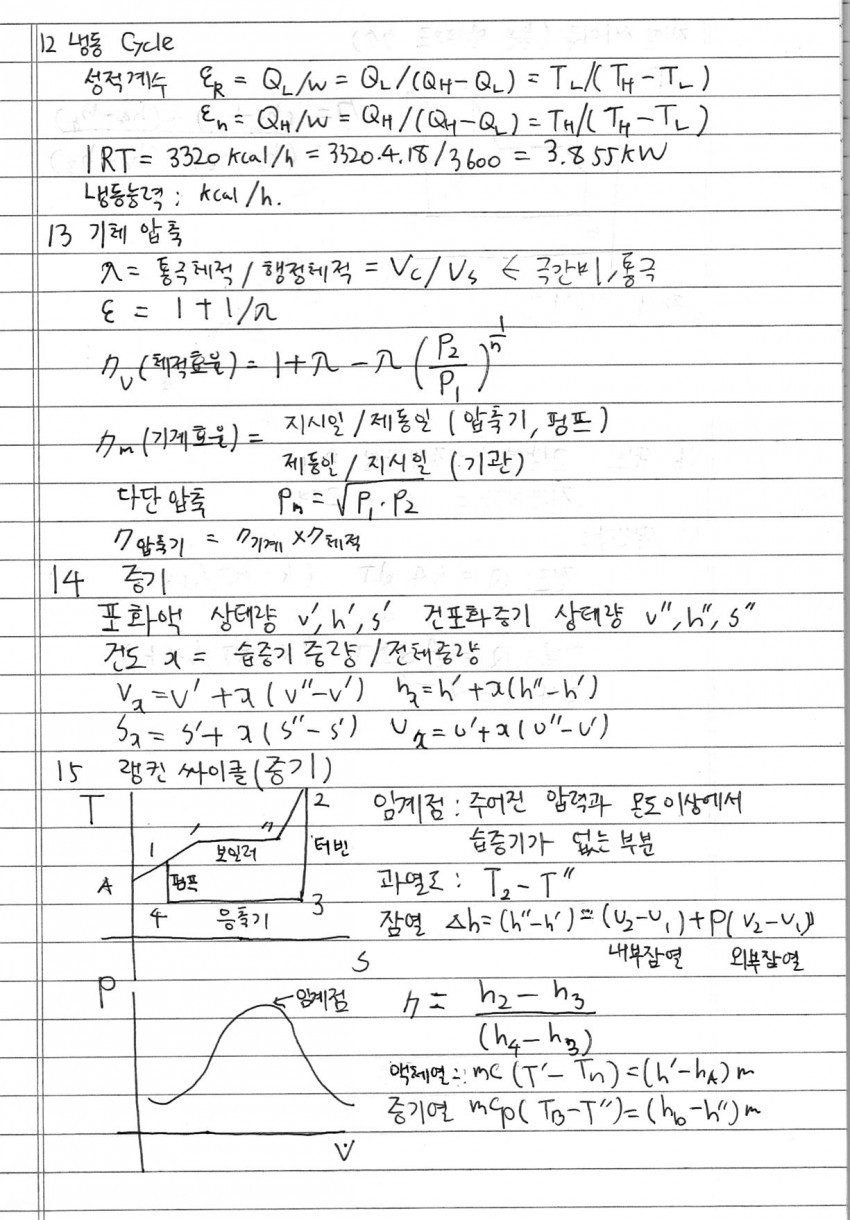 12 냉동 Cycle
성적계수 ε_R = Q_L/w = Q_L/(Q_H-Q_L) = T_L/(T_H-T_L)
ε_h = Q_H/w = Q_H/(Q_H-Q_L) = T_H/(T_H-T_L)
1RT = 3320 kcal/h = 3320·4.18/3600 = 3.855kW
냉동능력 ; kcal/h.
13 기체 압축
λ = 통극체적 / 행정체적 = Vc/Vs ← 극간비, 통극
ε = 1+1/λ
η_v(체적효율) = 1+λ-λ(P₂/P₁)^(1/n)
η_m(기계효율) = 지시일/제동일 (압축기, 펌프)
제동일/지시일 (기관)
다단압축 P_m = √P₁·P₂
η압축기 = η기계×η체적
14 증기
포화액 상태량 v', h', s' 건포화증기 상태량 v", h", s"
건도 x = 습증기 중량/전체중량
v_x = v' + x(v"-v') h_x = h' + x(h"-h')
s_x = s' + x(s"-s') u_x = u' + x(u"-u')
15 랭킨 싸이클(증기)
T 2 임계점 : 주어진 압력과 온도이상에서
1 ' " 보일러 터빈 습증기가 없는 부분
A 펌프 과열도 : T₂-T"
4 응축기 3 잠열 Δh = (h"-h') = (u₂-u₁)+P(v₂-v₁)
S 내부잠열 외부잠열
P ←임계점 η = (h₂-h₃)/(h₄-h₃)
액체열 : mc(T'-T_n) = (h'-h_A)m
증기열 mcp(T_B-T") = (h_b-h")m
V